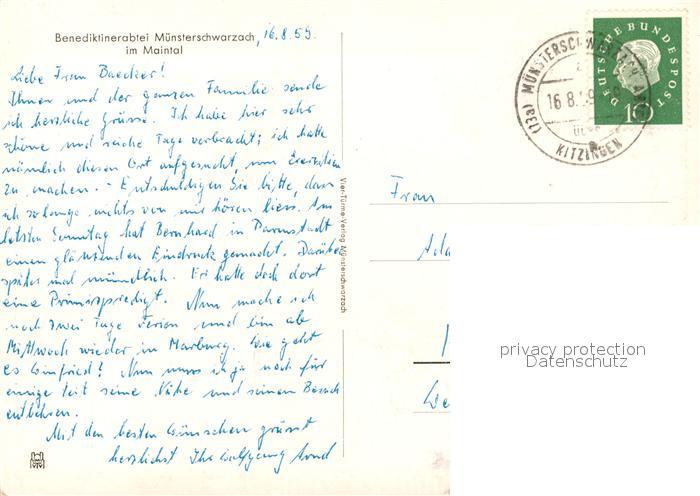 Benediktinerabtei Münsterschwarzach
im Maintal
16.8.59.
Liebe Frau Baecker!
Ihnen und der ganzen Familie sende
ich herzliche Grüsse. Ich habe hier sehr
schöne und reiche Tage verbracht; ich hatte
nämlich diesen Ort aufgesucht, um Exerzitien
zu machen. - Entschuldigen Sie bitte, dass
ich so lange nichts von mir hören liess. Am
letzten Sonntag hat Bernhard in Darmstadt
einen glänzenden Eindruck gemacht. Darüber
später mal mündlich. Er hatte doch dort
eine Primizpredigt. Nun mache ich
noch zwei Tage Ferien und bin ab
Mittwoch wieder in Marburg. Wie geht
es Winfried? Nun muss ich ja noch für
einige Zeit seine Nähe und seinen Besuch
entbehren.
Mit den besten Wünschen grüsst
herzlichst Ihr Wolfgang
Vier-Türme-Verlag Münsterschwarzach
(13a) MÜNSTERSCHWARZACH
16.8.59
ÜBER
KITZINGEN
DEUTSCHE BUNDESPOST
10
Frau
privacy protection
Datenschutz